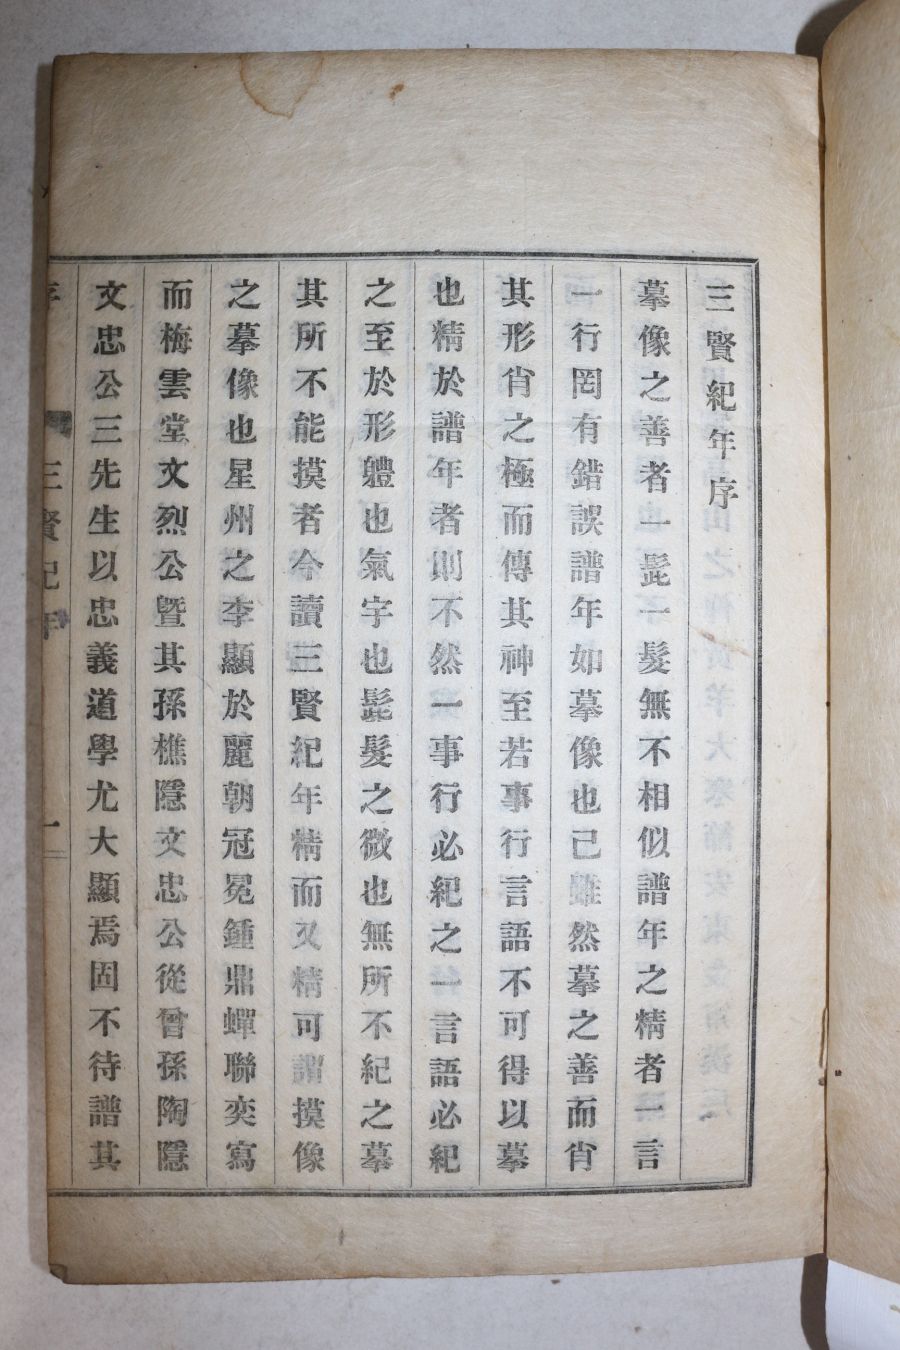 三賢紀年序
摹像之善者一髭一髮無不相似譜年之精者一言
一行罔有錯誤譜年如摹像也已雖然摹之善而肖
其形肖之極而傳其神至若事行言語不可得以摹
也精於譜年者則不然一事行必紀之一言語必紀
之至於形軆也氣宇也髭髮之微也無所不紀之摹
其所不能摸者今讀三賢紀年精而又精可謂摸像
之摹像也星州之李顯於麗朝冠冕鍾鼎蟬聯奕寫
而梅雲堂文烈公曁其孫樵隱文忠公從曾孫陶隱
文忠公三先生以忠義道學尤大顯焉固不待譜其
序 三賢紀年 一